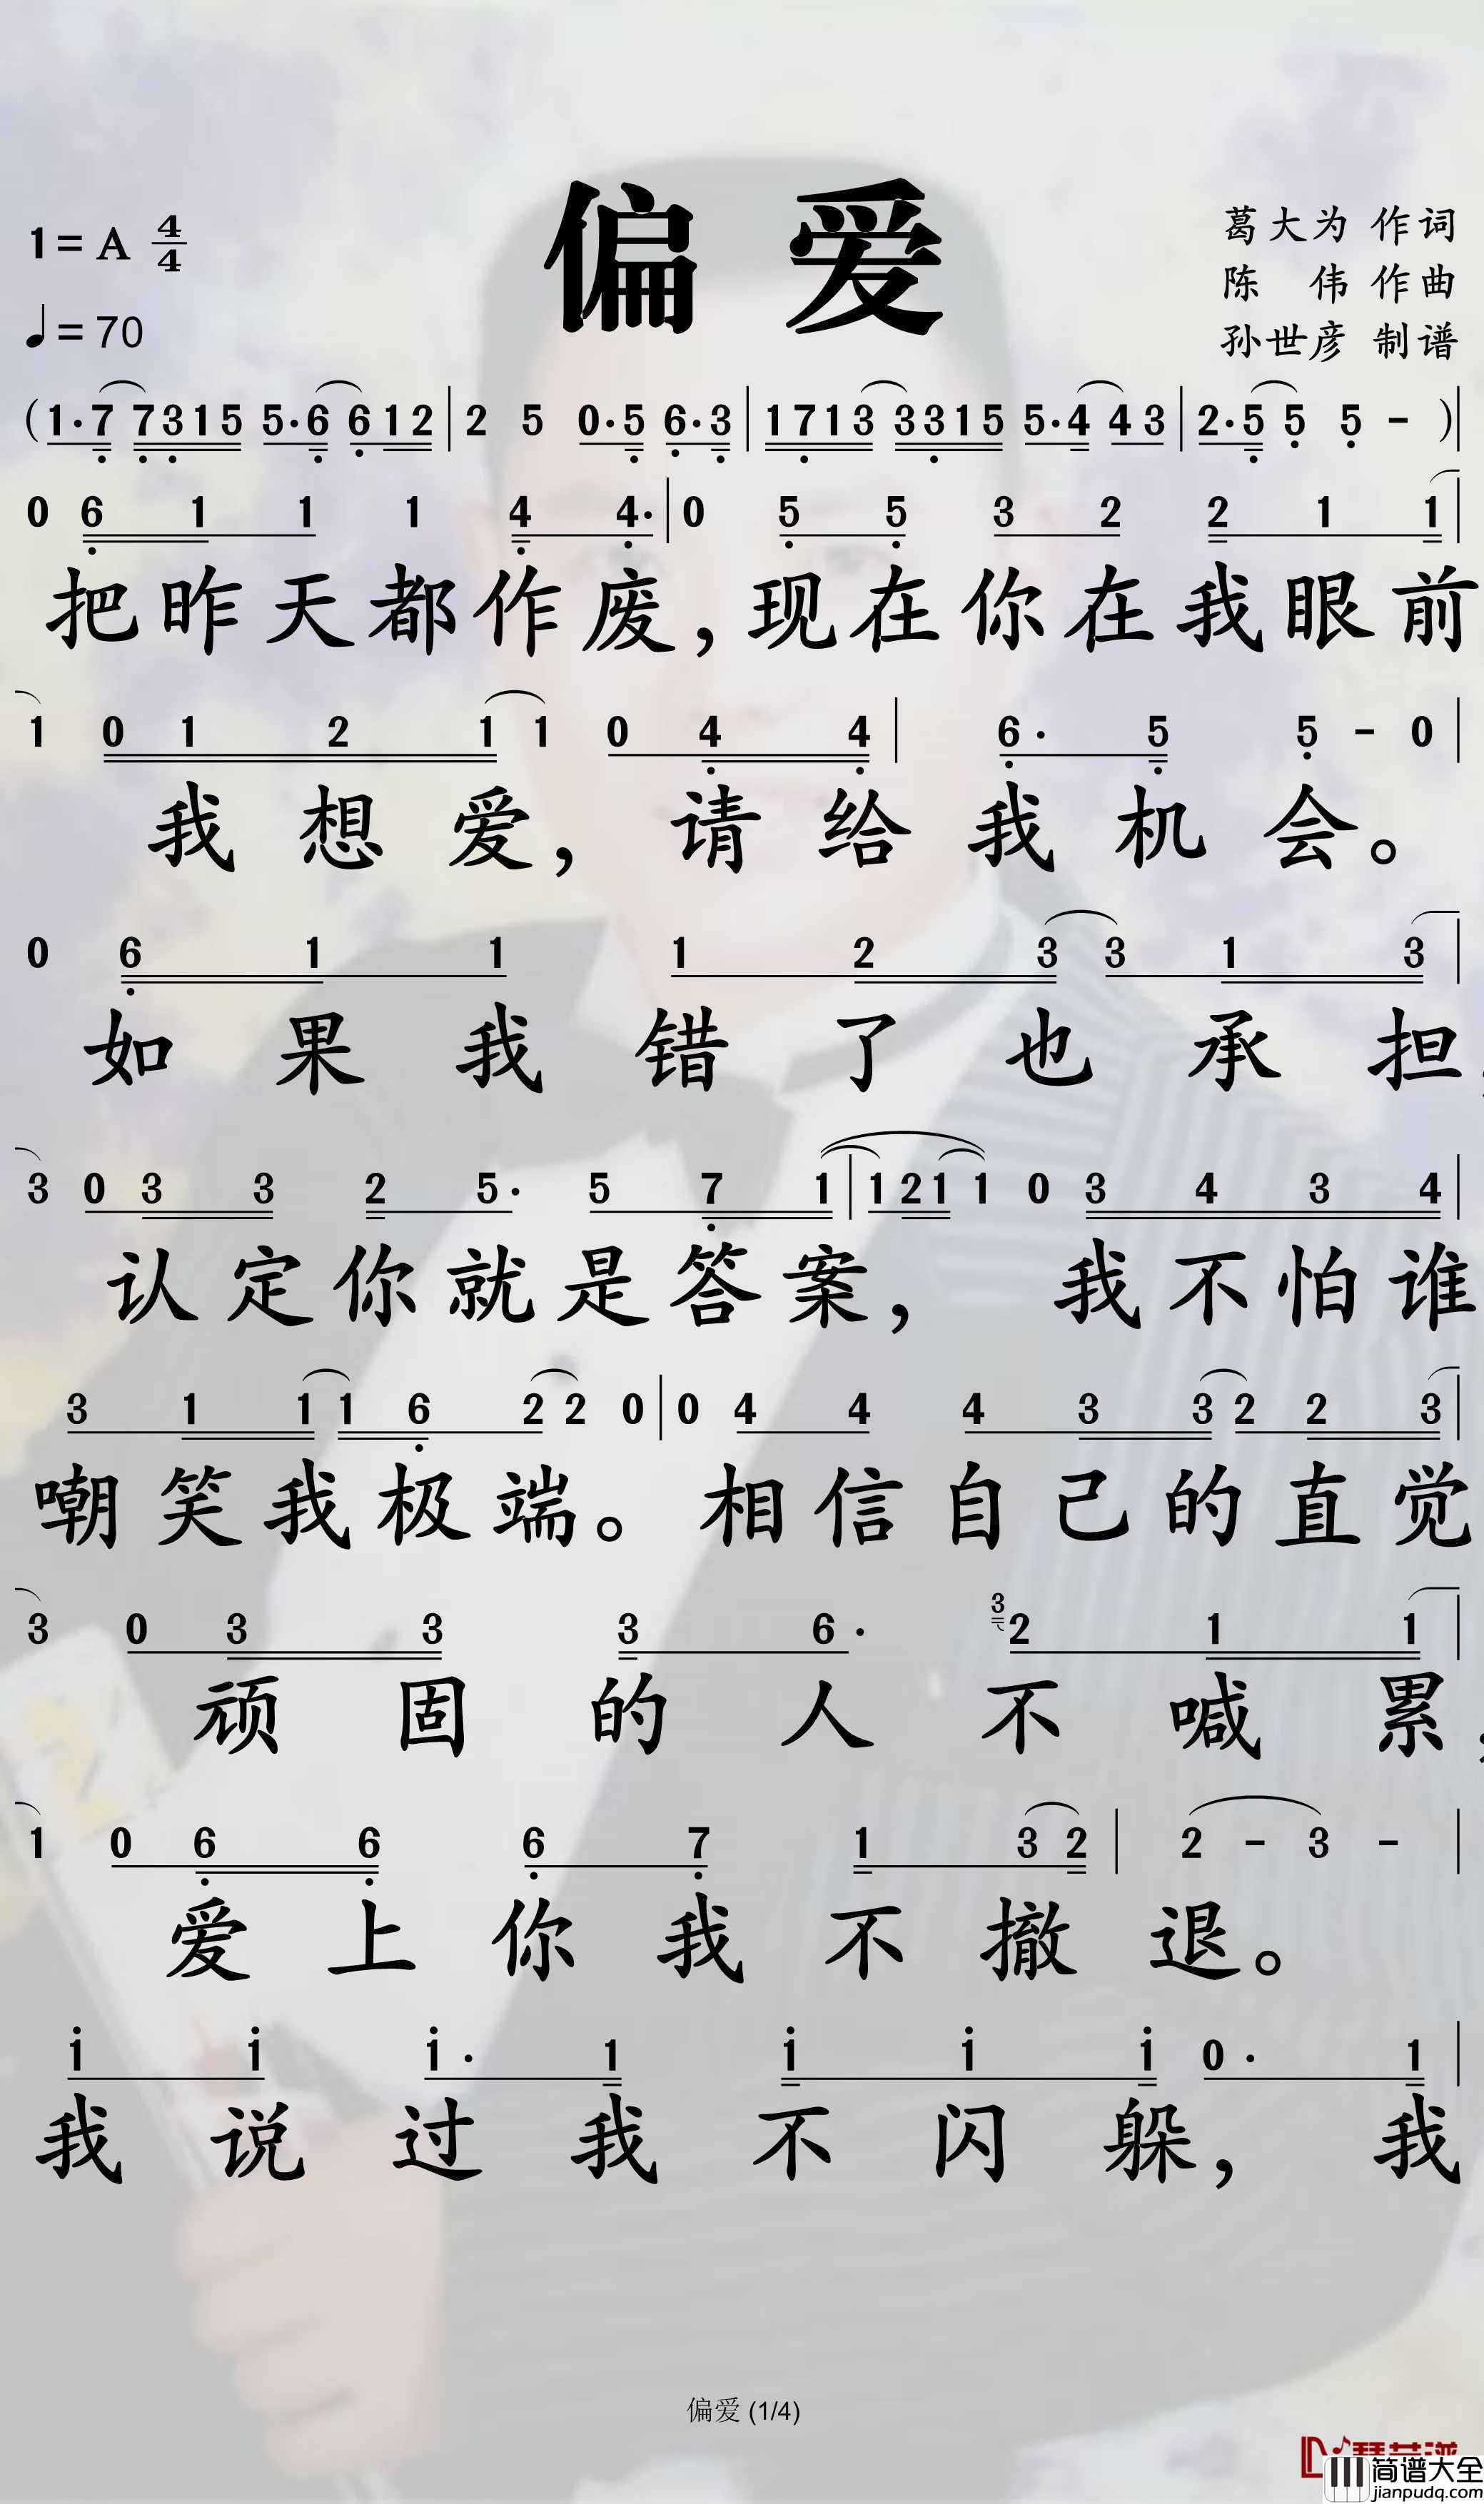 偏 爱
1=A 4/4
♩=70
葛大为 作词
陈 伟 作曲
孙世彦 制谱
(1·7 7315 5·6 612 | 2 5 0·5 6·3 | 1713 3315 5·4 43 | 2·5 5 5 - )|
0 6 1 1 1 4 4· | 0 5 5 3 2 2 1 1 |
把昨天都作废,现在你在我眼前
1 0 1 2 1 1 0 4 4 | 6· 5 5 - 0 |
我想爱,请给我机会。
0 6 1 1 1 2 3 3 1 3 |
如果我错了也承担
3 0 3 3 2 5· 5 7 1 | 1 2 1 1 0 3 4 3 4 |
认定你就是答案, 我不怕谁
3 1 1 1 6 2 2 0 | 0 4 4 4 3 3 2 2 3 |
嘲笑我极端。相信自己的直觉
3 0 3 3 3 6· 3 2 1 1 |
顽固的人不喊累,
1 0 6 6 6 7 1 3 2 | 2 - 3 - |
爱上你我不撤退。
i i i· 1 i i i 0· 1 |
我说过我不闪躲,我
偏爱 (1/4)
简谱大全
jianpudq.com